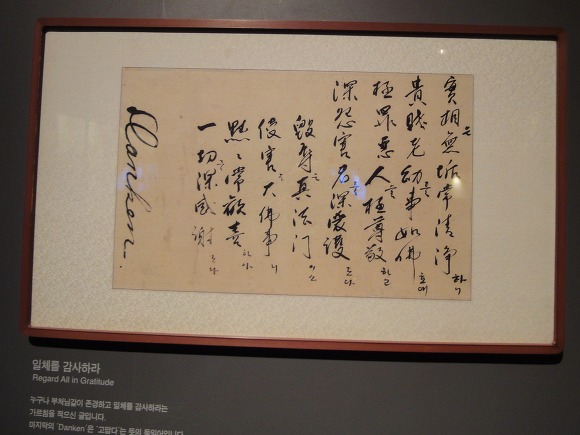 實相은無垢常清淨하니
貴賤老幼를事如佛호대
極罪惡人을極尊敬하고
深怨害者를深愛護로다
毀辱은真法门이요
侵害는大佛事니
默々常歡喜하야
一切를深感謝로다
Danken-.
일체를 감사하라
Regard All in Gratitude
누구나 부처님같이 존경하고 일체를 감사하라는
가르침을 적으신 글입니다.
마지막의 'Danken'은 '고맙다'는 뜻의 독일어입니다.